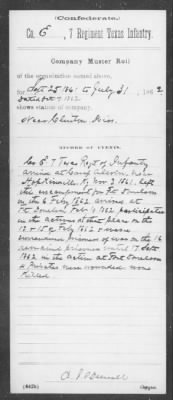 (Confederate.)
Co. E, 7 Regiment Texas Infantry.
Company Muster Roll
of the organization named above,
for Sept 25 1861 to July 31, 1862
dated Oct 7, 1862.
shows station of company,
Near Clinton Miss.
RECORD OF EVENTS.
Co E 7 Texas Regt of Infantry
arrived at Camp Alcorn, near
Hopkinsville Ky Nov 3, 1861, left
the encampment for Ft Donelson
on the 6 Feby 1862 arrived at
Ft Donelson Feb 1862 participated
in the actions at that place on the
13 & 15 of Feby &
surrendered prisoners of war on the 16
remained prisoners until 17 Sept
1862. In the action at Fort Donelson
Privates were wounded none
killed
(642b)
Copyist.